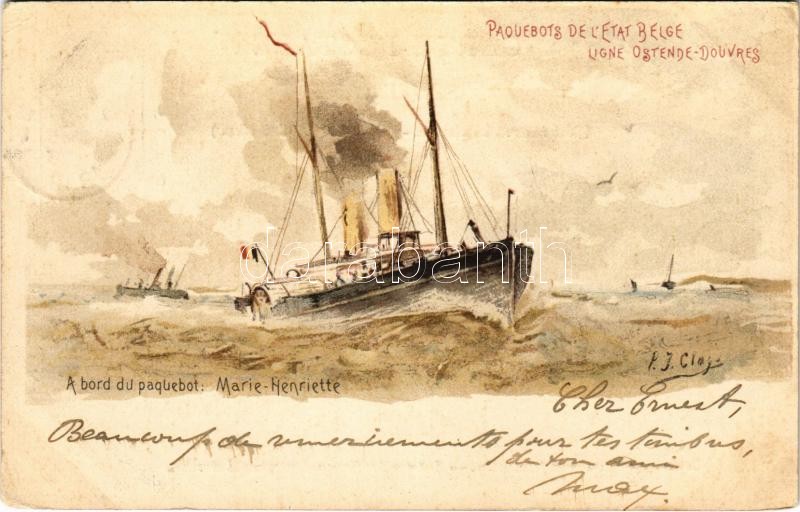 PAQUEBOTS DE L'ETAT BELGE
LIGNE OSTENDE-DOUVRES
darabanth
P. J. Clays
A bord du paquebot: Marie-Henriette
Cher Ernest,
Beaucoup de remerciements pour tes timbres,
de ton ami
Max.